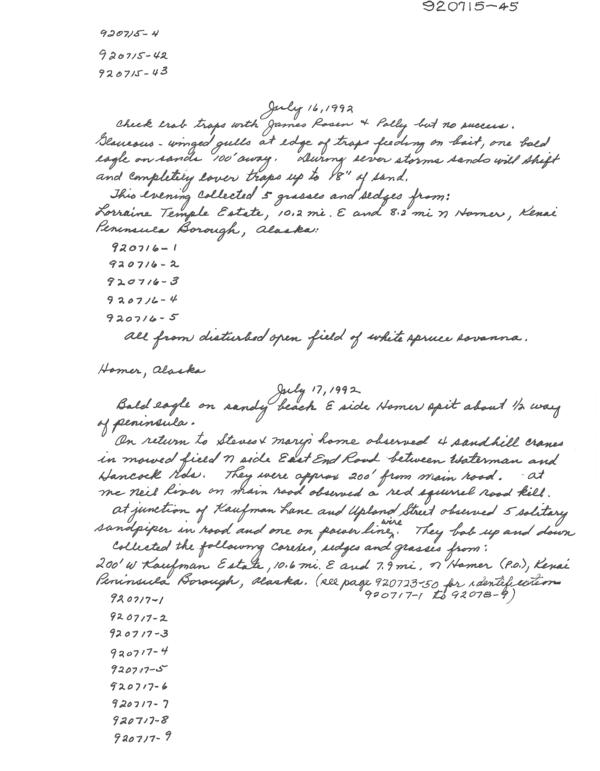 920715-45
920715-4
920715-42
920715-43
July 16, 1992
Check crab traps with James Rosen & Polly but no success.
Glaucous-winged gulls at edge of traps feeding on bait, one bald
eagle on sands 100' away. During sever storms sands will shift
and completely cover traps up to 18" of sand.
This evening collected 5 grasses and sedges from:
Lorraine Temple Estate, 10.2 mi. E and 8.2 mi N Homer, Kenai
Peninsula Borough, Alaska:
920716-1
920716-2
920716-3
920716-4
920716-5
All from disturbed open field of white spruce savanna.
Homer, Alaska
July 17, 1992
Bald eagle on sandy beach E side Homer spit about 1/2 way
of peninsula.
On return to Steves & Marys home observed 4 sandhill cranes
in mowed field N side East End Road between Waterman and
Hancock Rds. They were approx 200' from main road. At
Mc Neil River on main road observed a red squirrel road kill.
At junction of Kaufman Lane and Upland Street observed 5 solitary
sandpiper in road and one on power line wire. They bob up and down
Collected the following carexes, sedges and grasses from:
200' W Kaufman Estate, 10.6 mi. E and 7.9 mi. N Homer (P.O.), Kenai
Peninsula Borough, Alaska. (see page 920723-50 for identification
900717-1 to 92078-9)
920717-1
920717-2
920717-3
920717-4
920717-5
920717-6
920717-7
920717-8
920717-9